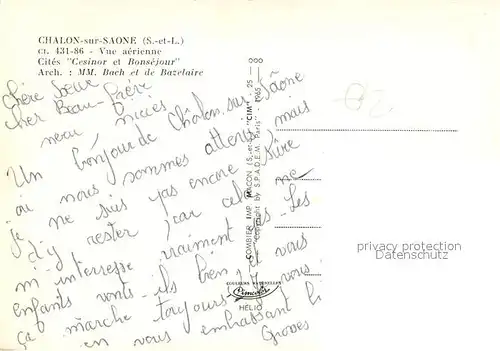 CHALON-sur-SAONE (S.-et-L.)
Ct. 431-86 - Vue aérienne
Cités "Cesinor et Bonséjour"
Arch. : MM. Bach et de Bazelaire
Chère Soeur
cher Beau-Frère
neveu nièces
Un bonjour de Châlon sur Saône
ou nous sommes attéris mais
je ne suis pas encore sûre
d'y rester car cela ne
m'interresse vraiment pas. Les
enfants vont-ils bien et vous
ça marche toujours ? vous
en vous embrassant
COMBIER IMP. MACON (S.-et-L.) "CIM"
Copyright by S.P.A.D.E.M. Paris - 1965
25 - 000
COULEURS NATURELLES
Combier
HÉLIO
privacy protection
Datenschutz